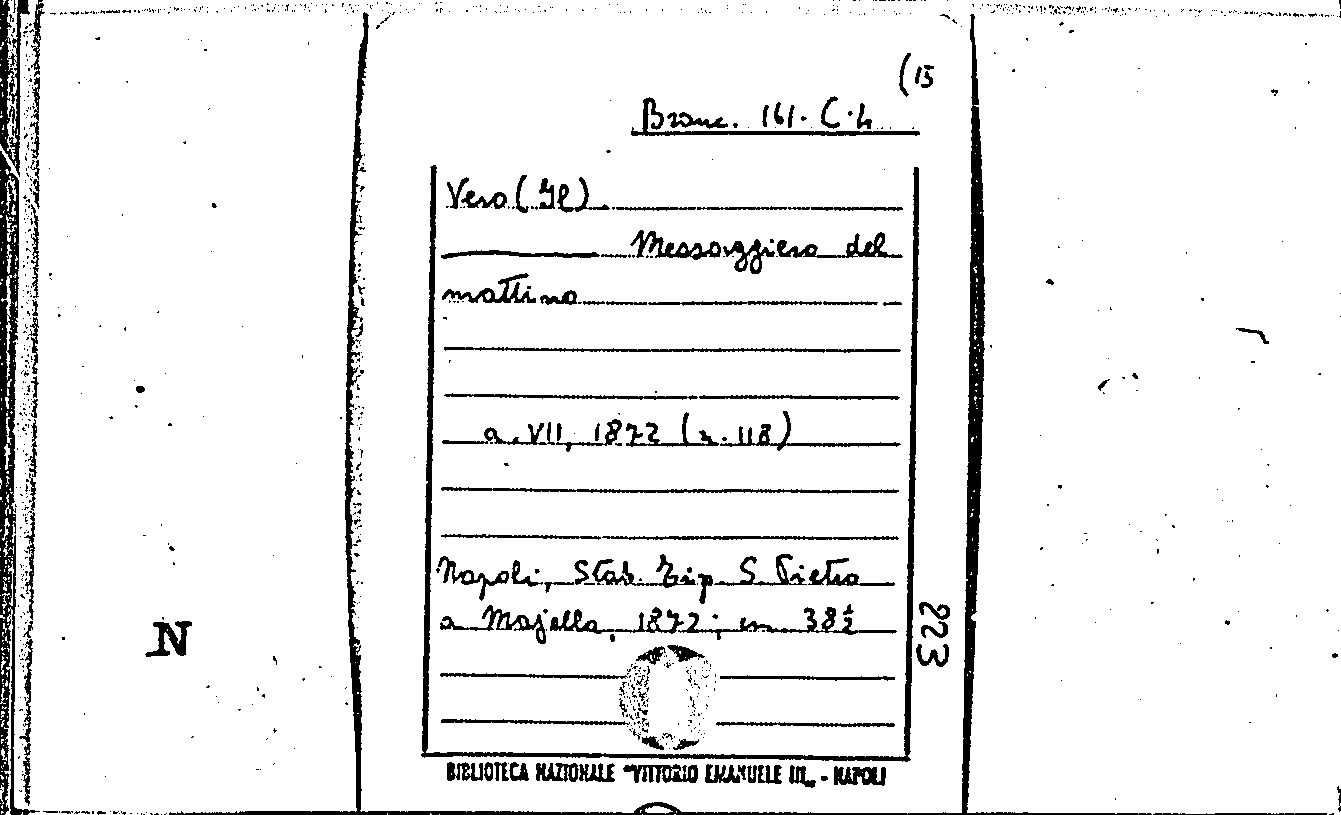 (15
Branc. 161. C. 4
Vero (Il).
Messaggiero del
mattino
a. VII, 1872 (n. 118)
Napoli, Stab. Tip. S. Pietro
a Majella, 1872; in 38½
223
N
BIBLIOTECA NAZIONALE "VITTORIO EMANUELE III" - NAPOLI